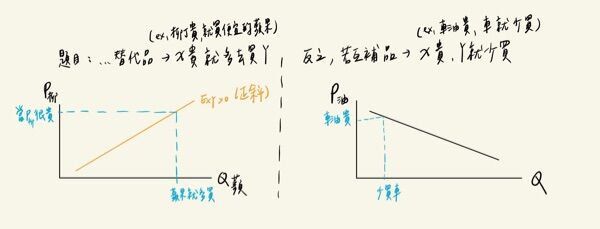 (ex, 柳丁貴,就買便宜的蘋果)
題目:...替代品 → X 貴 就多去買 Y
P柳
當P柳很貴
Exy>0 (正斜)
Q蘋
蘋果就多買
(ex, 車油貴, 車就少買)
反之, 若互補品 → X 貴, Y就少買
P油
車油貴
Q
少買車